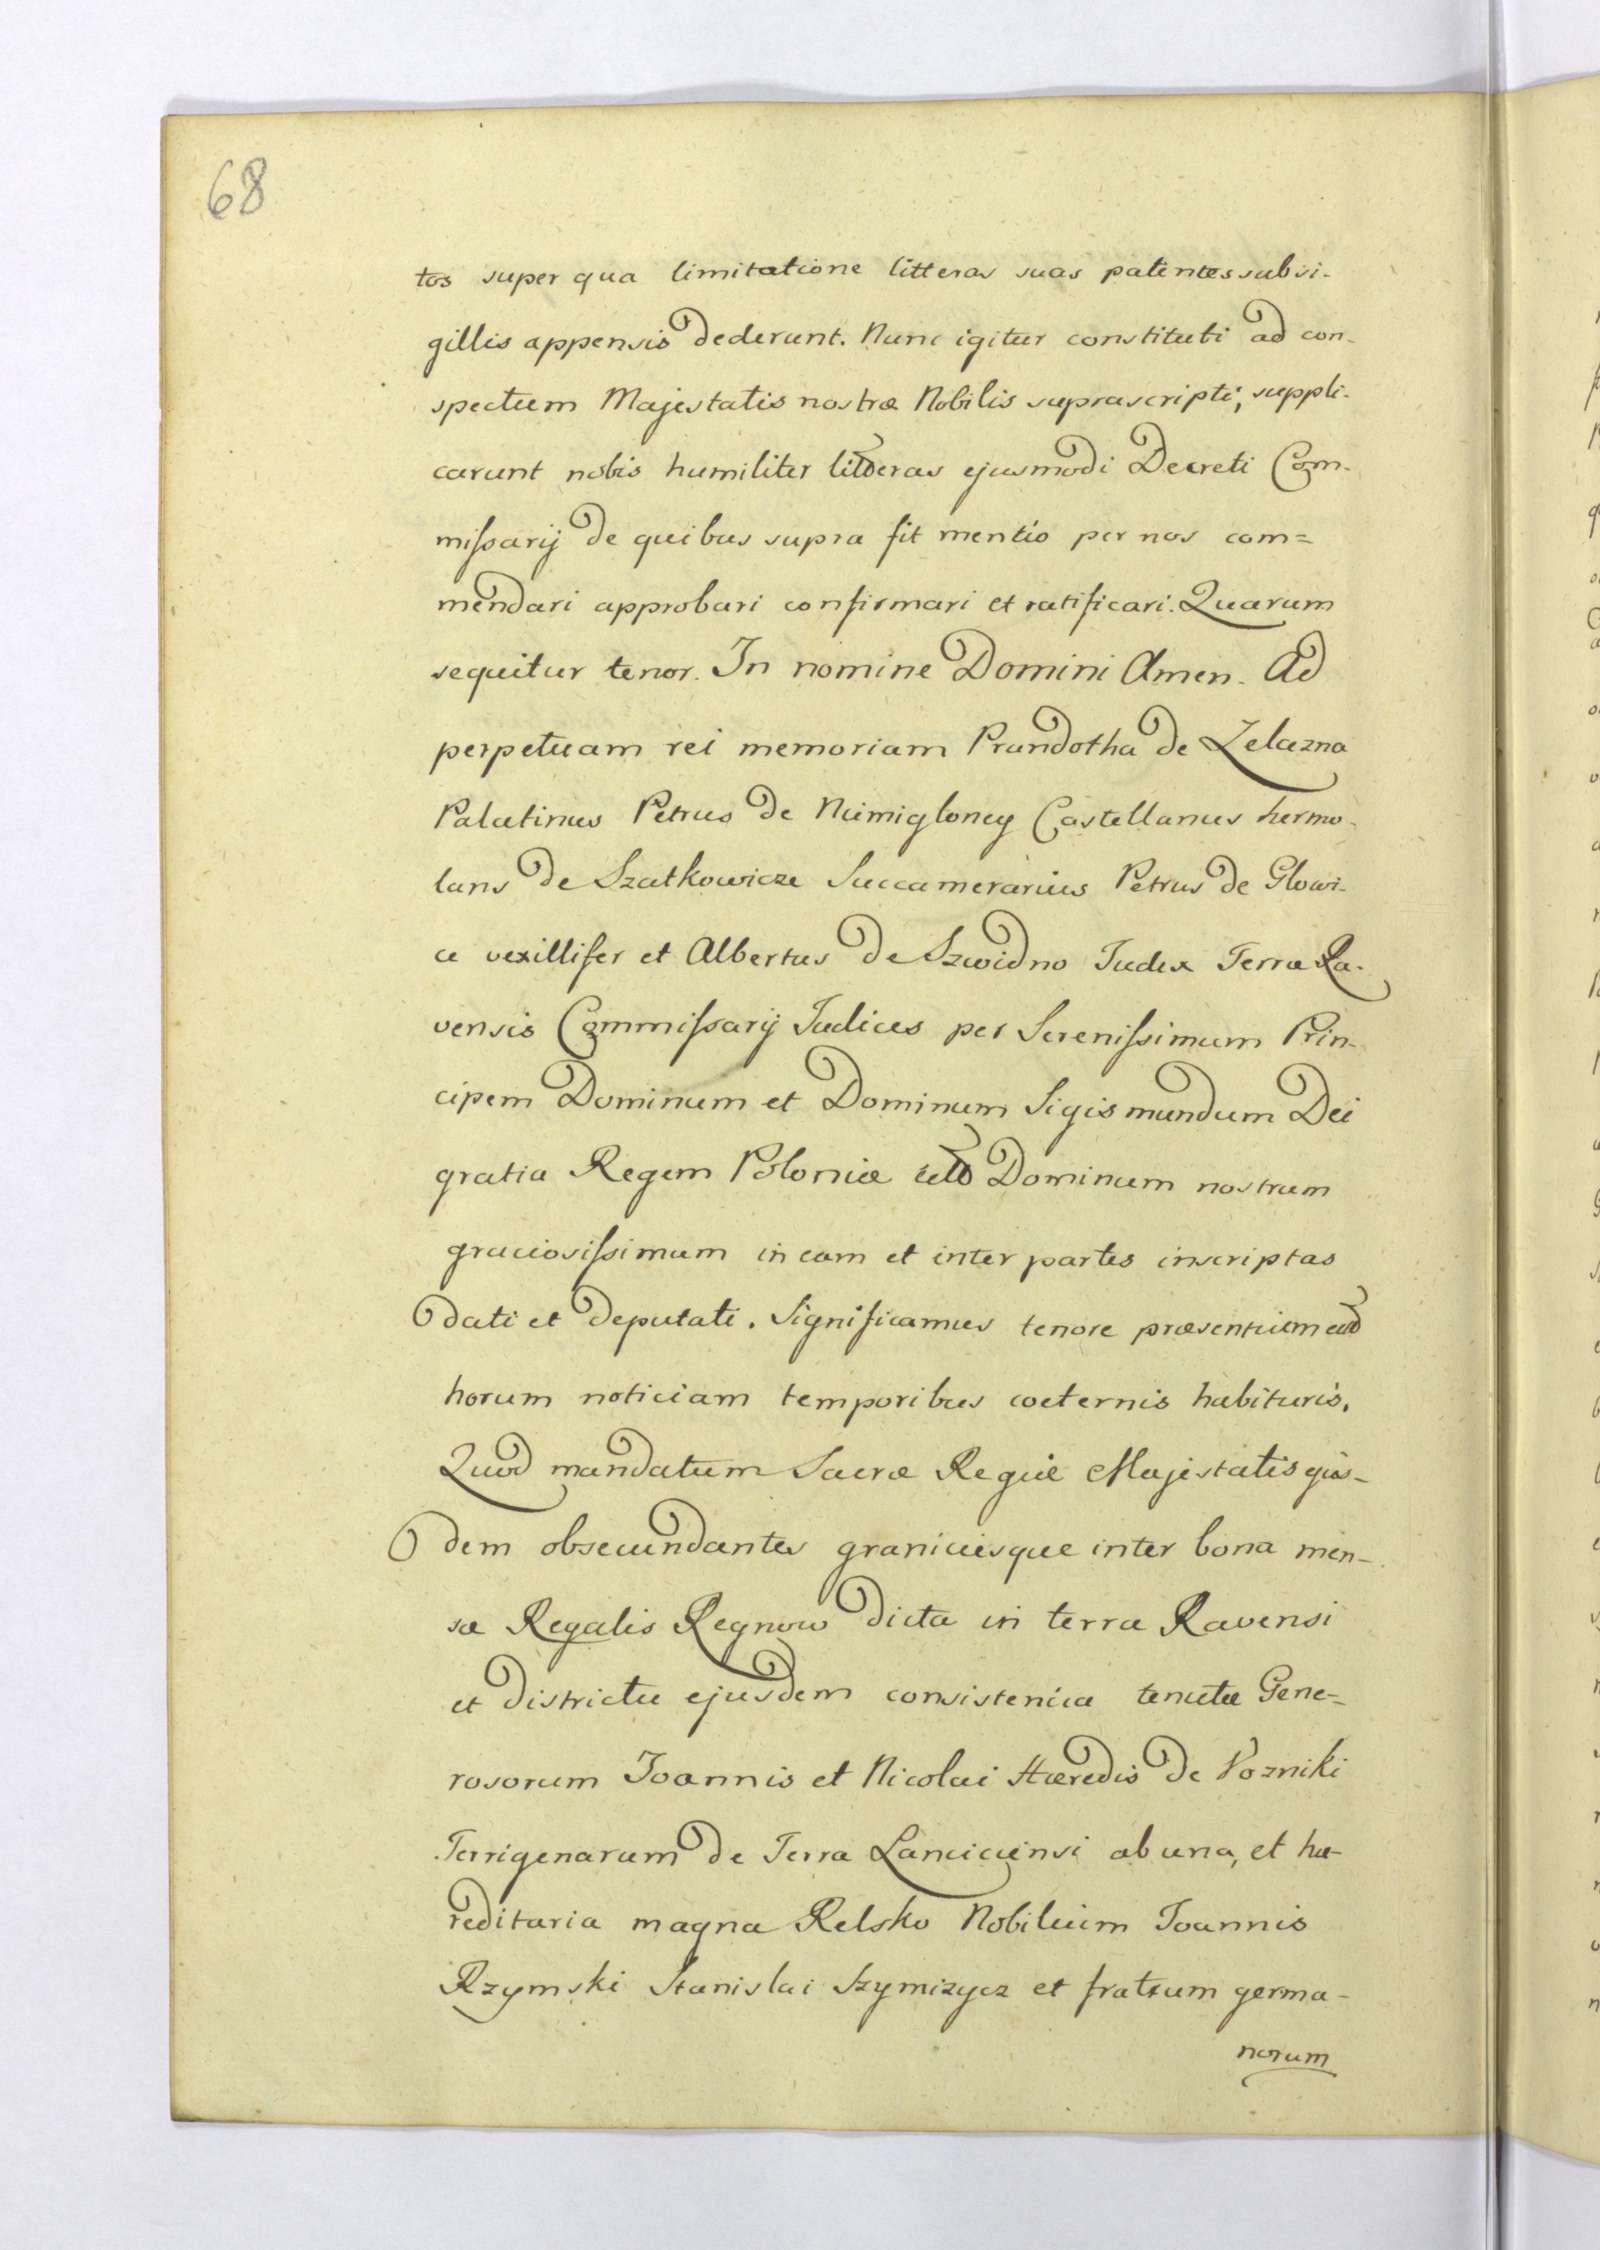 68
tos super qua limitatione litteras suas patentes subsi-
gillis appensis dederunt. Nunc igitur constituti ad con-
spectum Majestatis nostræ Nobilis suprascripti, suppli-
carunt nobis humiliter litteras ejusmodi Decreti Com-
missarij de quibus supra fit mentio per nos com=
mendari approbari confirmari et ratificari. Quarum
sequitur tenor. In nomine Domini Amen. Ad
perpetuam rei memoriam Prandotha de Zelazna
Palatinus Petrus de Niemigloney Castellanus hermo-
lans de Szatkowicze Succamerarius Petrus de Glowi-
ce vexillifer et Albertus de Szwidno Judex Terræ Ra-
vensis Commissarij Judices per Serenissimum Prin-
cipem Dominum et Dominum Sigismundum Dei
gratia Regem Poloniæ Dominum nostrum
graciosissimum in eam et inter partes inscriptas
dati et deputati. Significamus tenore præsentium
horum noticiam temporibus coeternis habituris.
Quod mandatum Sacræ Regiæ Majestatis ejus-
dem obsecundantes graniciesque inter bona men-
sæ Regalis Regnow dicta in terra Ravensi
et districtu ejusdem consistencia tenutæ Gene-
rosorum Joannis et Nicolai Hæredis de Vozniki
Terrigenarum de Terra Lanciciensi ab una, et hæ-
reditaria magna Relsko Nobilium Joannis
Rzymski Stanislai Szymizycz et fratrum germa-
norum